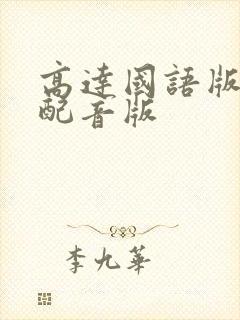 高達國語版
配音版
李九華